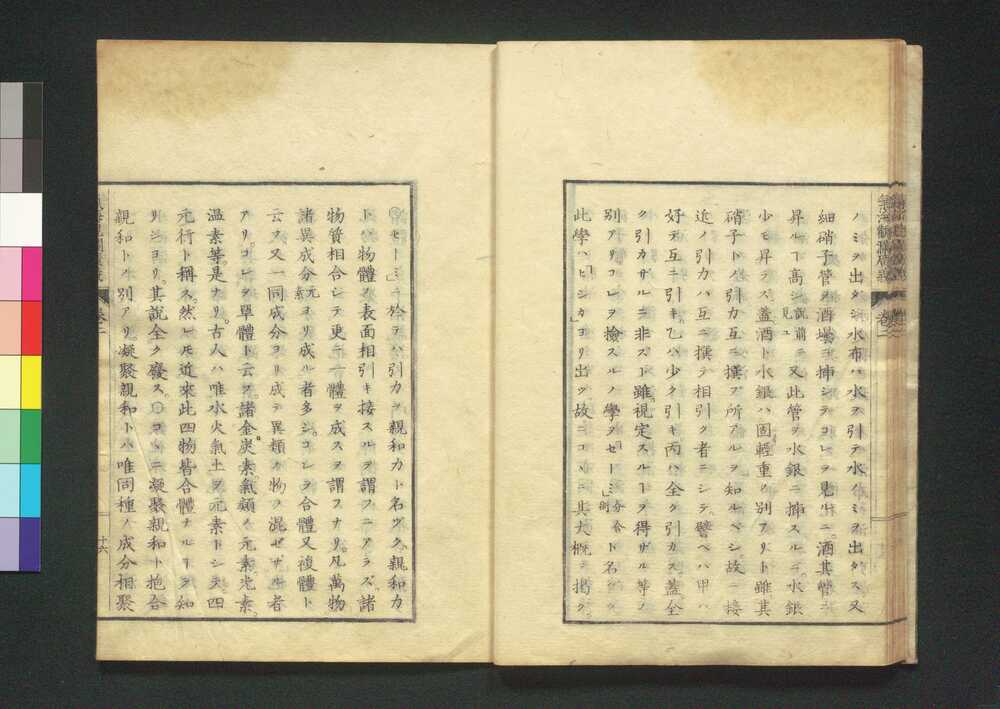 ノミヲ出ダシ水布ハ水ヲ引テ水ノミヲ出タス又
細硝子管ヲ酒塲ニ挿シテコレヲ見ルニ酒其管ニ
昇ルヿ高シ説前ニ見ユ又此管ヲ水銀ニ挿スルニ水銀
少モ昇ラス蓋酒ト水銀ハ固輕重ノ別アリト雖其
硝子ト引力互ニ撰ブ所アルヲ知ルベシ故ニ接
近ノ引力ハ互ニ撰テ相引ク者ニシテ譬ヘハ甲ハ
好テ互ニ引キ乙ハ少ク引キ丙ハ全ク引カス蓋全
ク引カザルニ非ズト雖視定スルヿヲ得ザル等ノ
別アリコレヲ撿スルノ學ヲセーミ分合ト名ク
此學ハヒシカヨリ出ツ故ニコヽニ其大概ヲ掲ク
セーミニ於テハ引力ヲ親和力ト名ヅク親和力
トハ物體ノ表面相引キ接スルヲ謂フニアラズ諸
物質相合シテ更ニ一體ヲ成スヲ謂フナリ凡萬物
諸異成分元素ヨリ成ル者多シコレヲ合體又複體ト
云フ又一同成分ヨリ成テ異類ノ物ヲ混ゼザル者
アリコレヲ單體ト云フ諸金炭素氣類ノ元素光素
温素等是ナリ古人ハ唯水火氣土ヲ元素トシテ四
元行ト稱ス然レ𪜈近來此四物皆合體ナルヿヲ知
リシヨリ其説全ク廢ス〇コヽニ凝聚親和ト抱合
親和トノ別アリ凝聚親和トハ唯同種ノ成分相聚
卷二
十六